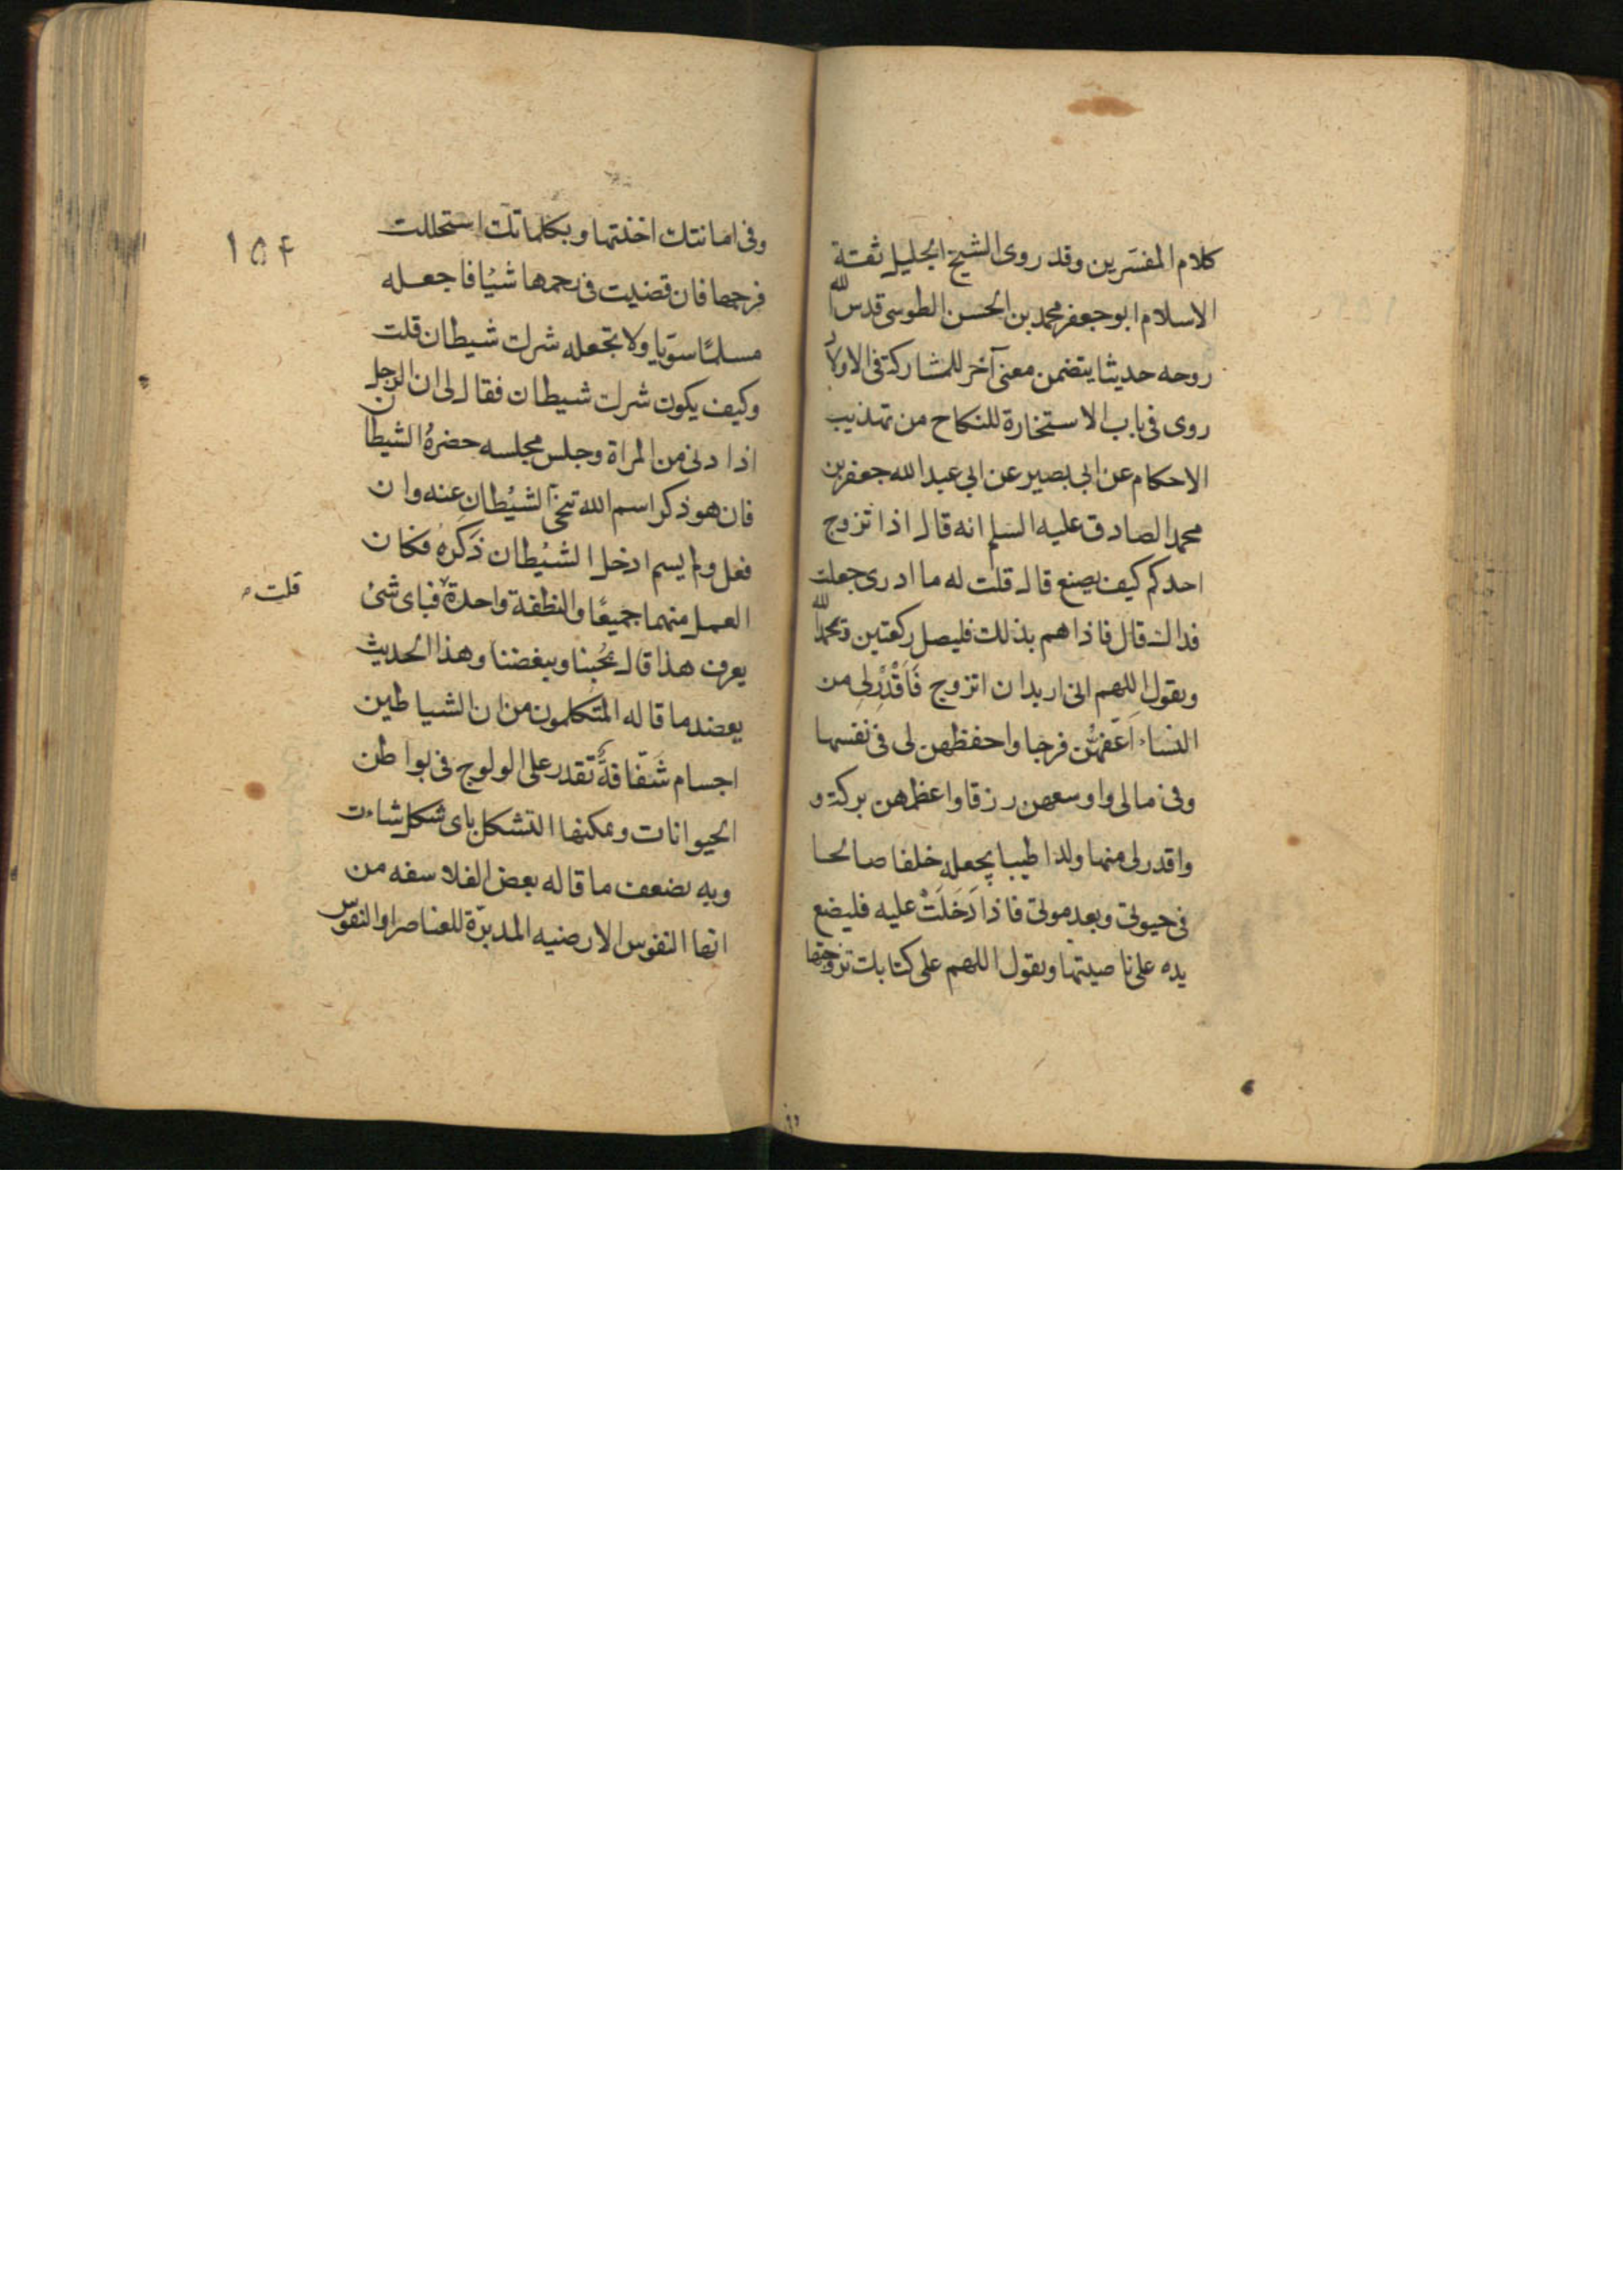 كلام المفسرين وقد روى الشيخ الجليل ثقة
الاسلام ابو جعفر محمد بن الحسن الطوسى قدس الله
روحه حديثا يتضمن معنى آخر للمشاركة فى الاولاد
روى فى باب الاستخارة للنكاح من تهذيب
الاحكام عن ابي بصير عن ابي عبد الله جعفر بن
محمد الصادق عليه السلم انه قال اذا تزوج
احدكم كيف يصنع قال قلت له ما ادرى جعلت
فداك قال فاذا هم بذلك فليصل ركعتين ويحمد الله
ويقول اللهم انى اريد ان اتزوج فَاَقْدُرْلِى من
النساء اَعَفَّهُنَّ فرجا واحفظهن لى فى نفسها
وفى مالى واوسعهن رزقا واعظمهن بركة و
واقدر لى منها ولدا طيبا يجعله خلفا صالحا
فى حيوتى وبعد موتى فاذا دَخَلَتْ عليه فليضع
يده على ناصيتها ويقول اللهم على كتابك تزوجتها
وفى امانتك اخذتها وبكلماتك استحللت
فرجها فان قضيت فى رحمها شيئا فاجعله
مسلمًا سويا ولا تجعله شرك شيطان قلت
وكيف يكون شرك شيطان فقال لى ان الرجل
اذا دنى من المراة وجلس مجلسه حضرهُ الشيطان
فان هو ذكر اسم الله تنحى الشيطان عنه وان
فعل ولم يسم ادخل الشيطان ذَكَرَهُ فكان
العمل منهما جميعًا والنطفة واحدة فباى شئ
قلت
يعرف هذا قال بحُبنا وببغضنا وهذا الحديث
يعضد ما قاله المتكلمون من ان الشياطين
اجسام شَفافةٌ تقدر على الولوج فى بواطن
الحيوانات ويمكنها التشكل باى شكل شاءت
وبه يضعف ما قاله بعض الفلاسفه من
انها النفوس الارضيه المدبّرة للعناصر او النفوس
١٥۴